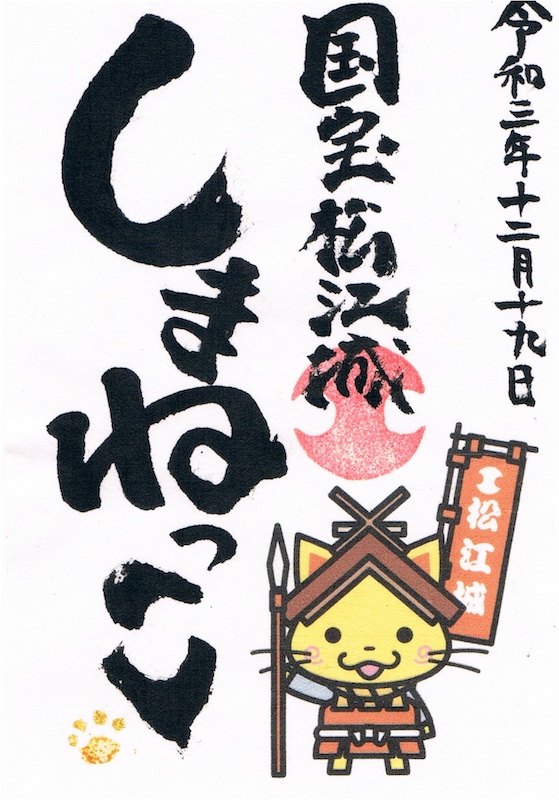 令和三年十二月十九日
国宝松江城
しまねっこ
松江城